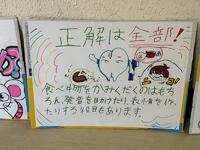 正解は全部!
食べ物をかみくだくのはもち
ろん、発音を助けたり、表情を作っ
たりする役目もあります。